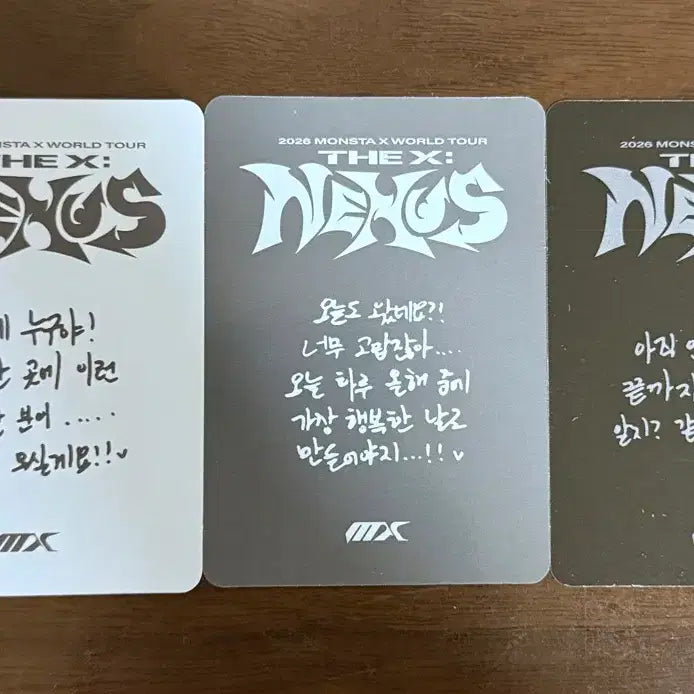 MONSTA X WORLD TOUR
THE X:
NEXUS
누구야!
곳에 이런
분이 .....
오실게요!!♥
MX
2026 MONSTA X WORLD TOUR
THE X:
NEXUS
오늘도 왔네요?!
너무 고맙잖아....
오늘 하루 올해 중에
가장 행복한 날로
만들어야지...!!♥
MX
2026 MONSTA
THE X:
NEXUS
아직
끝까지
알지?